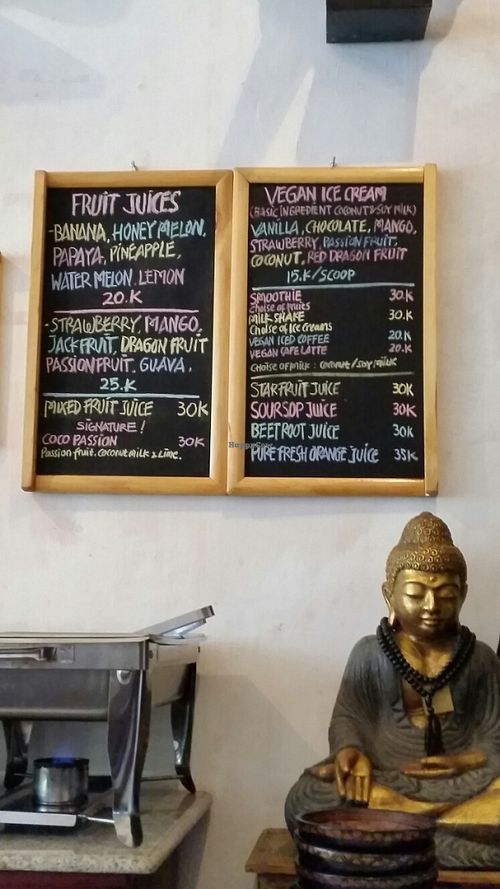 FRUIT JUICES
-BANANA, HONEY MELON,
PAPAYA, PINEAPPLE,
WATER MELON, LEMON
20.K
-STRAWBERRY, MANGO,
JACKFRUIT, DRAGON FRUIT
PASSIONFRUIT, GUAVA,
25.K
MIXED FRUIT JUICE 30K
SIGNATURE!
COCO PASSION 30K
Passion fruit. Coconut milk & Lime.
VEGAN ICE CREAM
(BASIC INGREDIENT COCONUT & SOY MILK)
VANILLA, CHOCOLATE, MANGO,
STRAWBERRY, PASSION FRUIT,
COCONUT, RED DRAGON FRUIT
15.K/SCOOP
SMOOTHIE 30.K
Choise of fruits
MILK SHAKE 30.K
Choise of Ice creams
VEGAN ICED COFFEE 20.K
VEGAN CAFE LATTE 20.K
CHOISE OF MILK : COCONUT/SOY MILK
STARFRUIT JUICE 30K
SOURSOP JUICE 30K
BEETROOT JUICE 30K
PURE FRESH ORANGE JUICE 35K